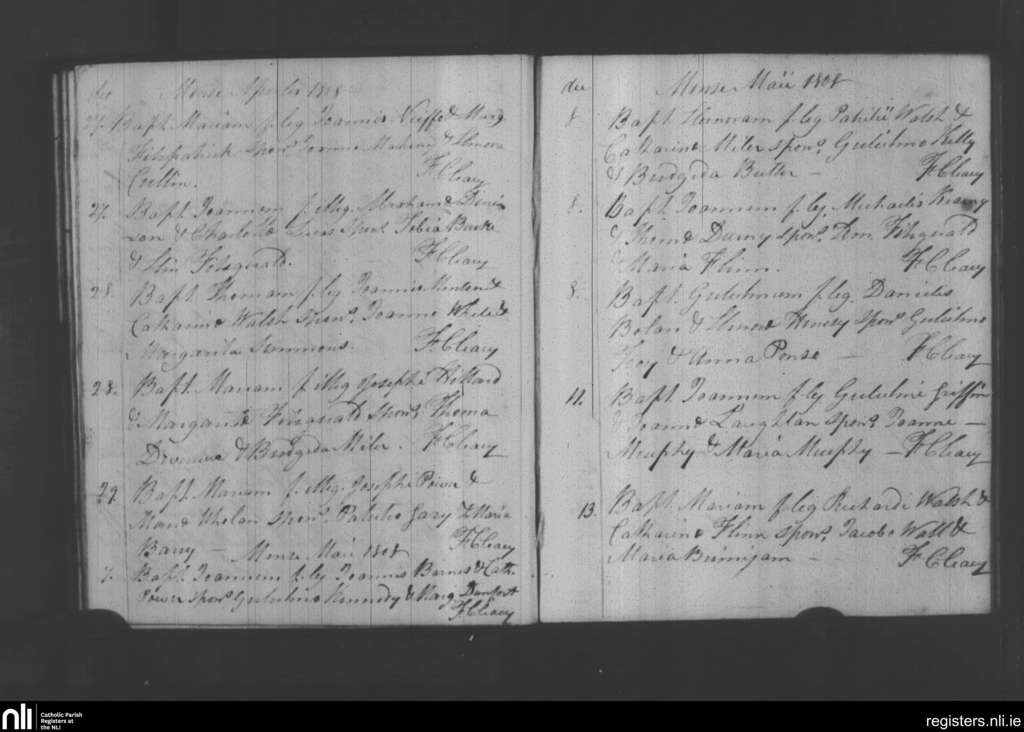 die Mense Aprilis 1808
27. Bapt. Mariam f. leg. Joannis Keiffe & Marg.
Fitzpatrick spons. Joanne & Honora
Cullin. F. Cleary
27. Bapt. Joannem f. illeg.
& Charlotte Lucas spons. Tobia Burke
& Fitzgerald. F. Cleary
28. Bapt. Thomam f. leg. Joannis &
Catharinae Walsh spons. Joanne White &
Margarita Simmons. F. Cleary
28. Bapt. Mariam f. illeg. Josephi
& Margaritae Fitzgerald spons. Thoma
& Brigida Miler. F. Cleary
29. Bapt. Mariam f. illeg. Josephi Power &
Mariae Whelan spons. Patritio Gary & Maria
Barry — F. Cleary
Mense Maii 1808
7. Bapt. Joannem f. leg. Joannis Barnes & Cath.
Power spons. Gulielmo Kennedy & Marg.
F. Cleary
die Mense Maii 1808
8 Bapt. Honoram f. leg. Patritii Walsh &
Catharinae Miler spons. Gulielmo Kelly
& Brigida Butler — F. Cleary
8. Bapt. Joannem f. leg. Michaelis
& spons. Fitzgerald
& Maria Flinn. F. Cleary
8. Bapt. Gulielmum f. leg. Danielis
Bolan & Honorae spons. Gulielmo
& Anna Power — F. Cleary
11. Bapt. Joannem f. leg. Gulielmi Griffin
& Joannae Laughlan spons. Joanne —
Murphy & Maria Murphy — F. Cleary
13. Bapt. Mariam f. leg. Richardi Walsh &
Catharinae Flinn spons. Jacobo Wall &
Maria — F. Cleary
nli Catholic Parish
Registers at
the NLI
registers.nli.ie